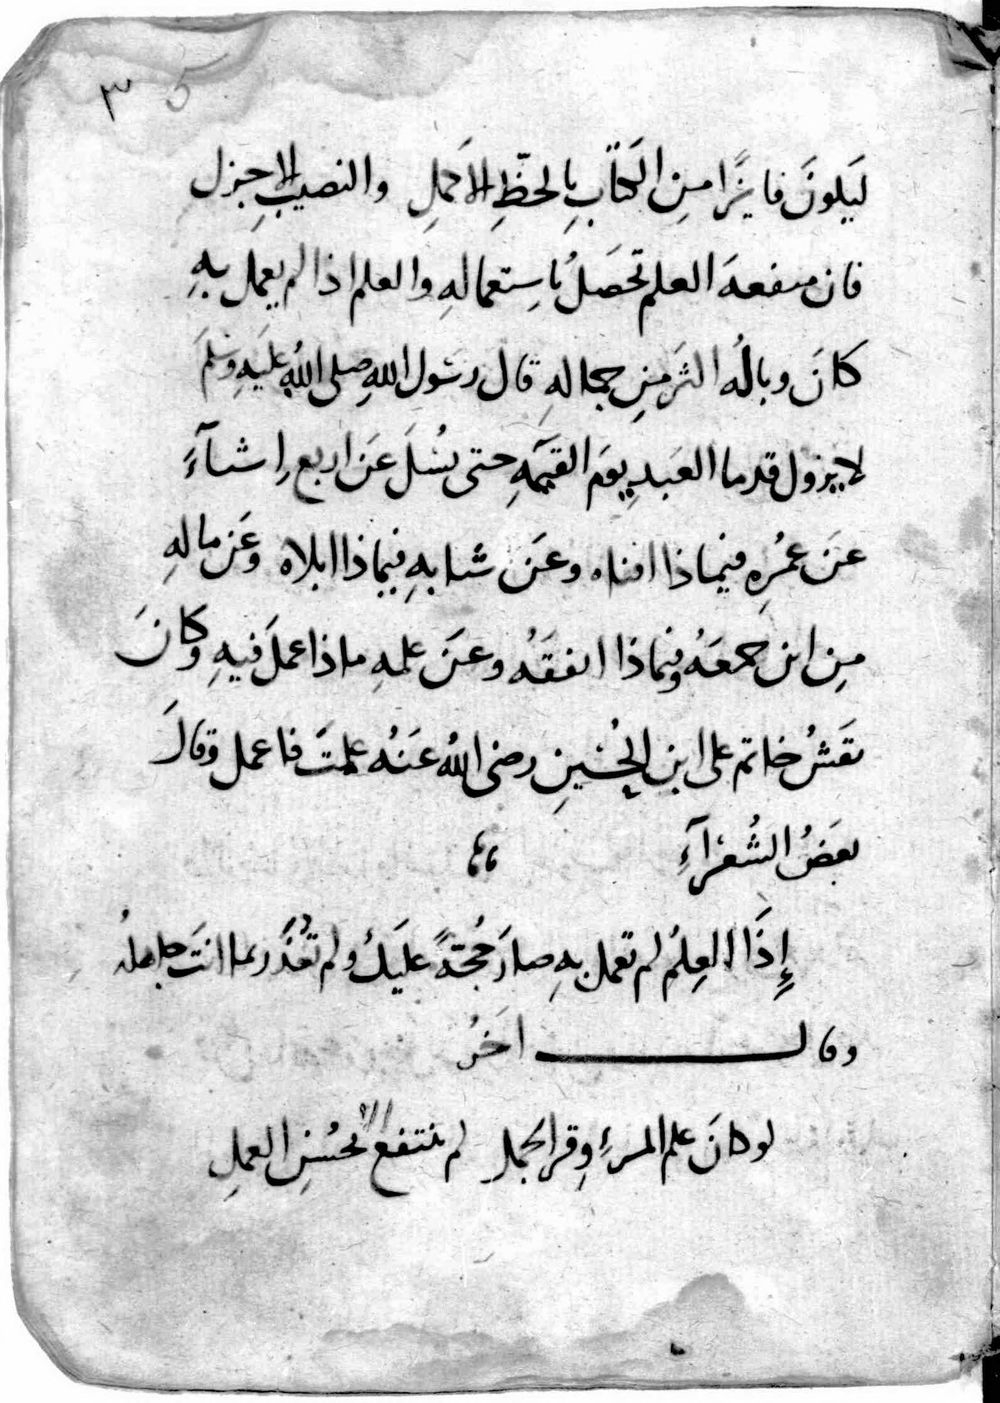 ٣ 5
ليكونَ فايزًا مِن الكتابِ بِالحظِّ الاَجملِ والنصيبِ الاجزل
فان منفعة العلم تحصَلُ باستعمالهِ والعلم اذا لم يعمل بهِ
كانَ وبالُه اكثرَ مِنِ جمالهِ قال رسَول اللهِ صلى اللهُ عليَهِ وسَلمَ
لا يزول قدما العَبدِ يومَ القيمَهِ حتى يسُئلَ عَن اربع اشيآءَ
عنَ عمُرِهِ فيماذا افناه وعنَ شبابهِ فيماذا ابلاه وعَن مالهِ
مِن اين جمعَهُ وفيماذا انفقَهُ وعنَ علمهِ ماذا عملَ فيهِ وكانَ
نقَشُ خاتم على ابن الحُسَينِ رضى اللهُ عَنهُ علمتَ فاعمل وقالَ
بعَضُ الشُعرآءِ
إِذَا العِلمُ لم تعمل بهِ صارَ حُجةً عليَكَ ولم تعُذَر بما انتَ جاهلهُ
وقال اخَرُ
لو كانَ علم المرءِ وِقر الجمل لم ينتفع الا بحسُنِ العملِ